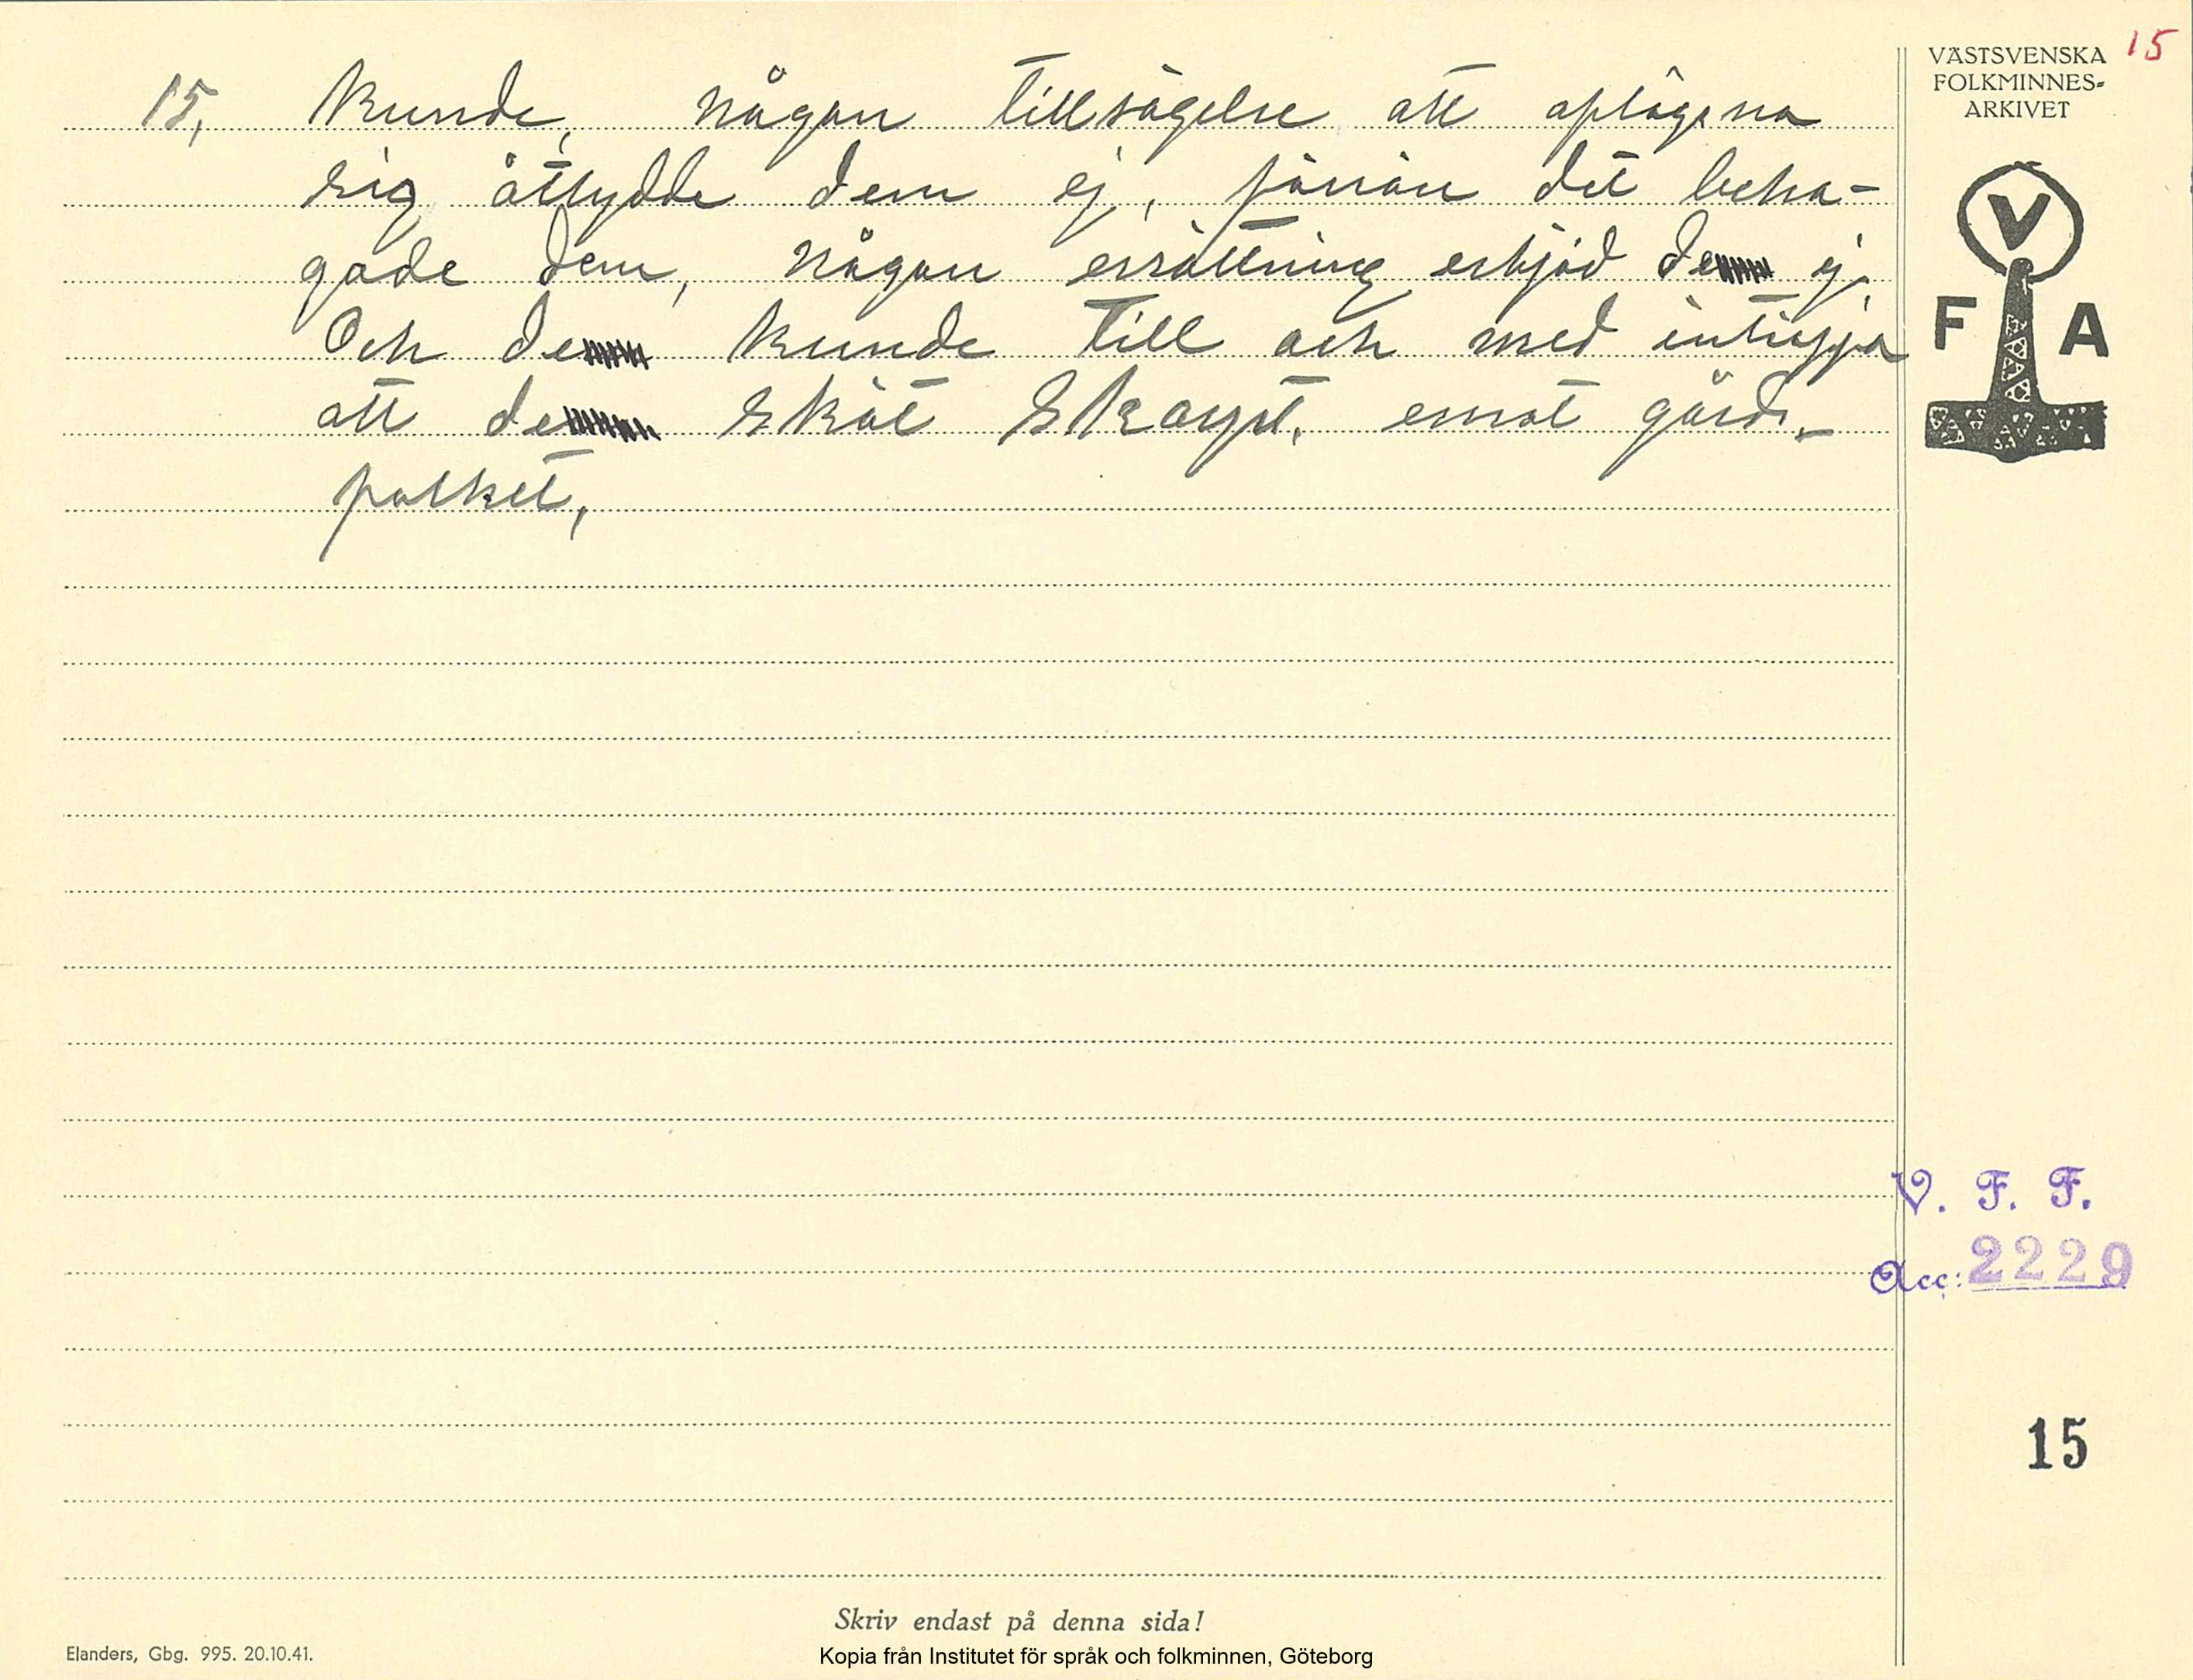 15
VÄSTSVENSKA
FOLKMINNES-
ARKIVET
V
F A
15, kunde, någon tillsägelse att aflägsna
sig åtlydde dem ej, förrän det beha-
gade dem, någon ersättning erbjöd de ej.
Och de kunde till och med inträffa
att de sköt skarpt, emot gårds-
folket,
V. F. F.
Acc: 2229
15
Skriv endast på denna sida!
Elanders, Gbg. 995. 20.10.41.
Kopia från Institutet för språk och folkminnen, Göteborg